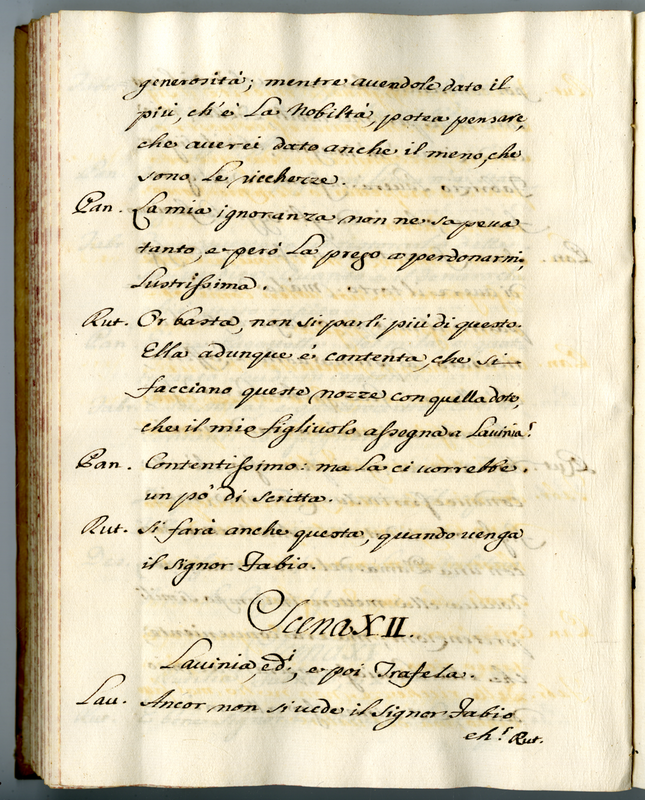 generosità; mentre avendole dato il
più, ch'è La Nobiltà, potea pensare,
che averei dato anche il meno, che
sono Le ricchezze.
Pan. La mia ignoranza non ne sapeva
tanto, e però La prego a perdonarmi,
Lustrissima.
Rut. Or basta, non si parli più di questo.
Ella adunque è contenta, che si
facciano queste nozze con quella dote,
che il mio figliuolo assegna a Lavinia?
Pan. Contentissimo: ma La ci vorrebbe
un pò di Scritta.
Rut. Si farà anche questa, quando venga
il Signor Fabio.
Scena XII.
Lavinia, ed.i, e poi Trafela.
Lau. Ancor non si vede il Signor Fabio
eh? Rut.